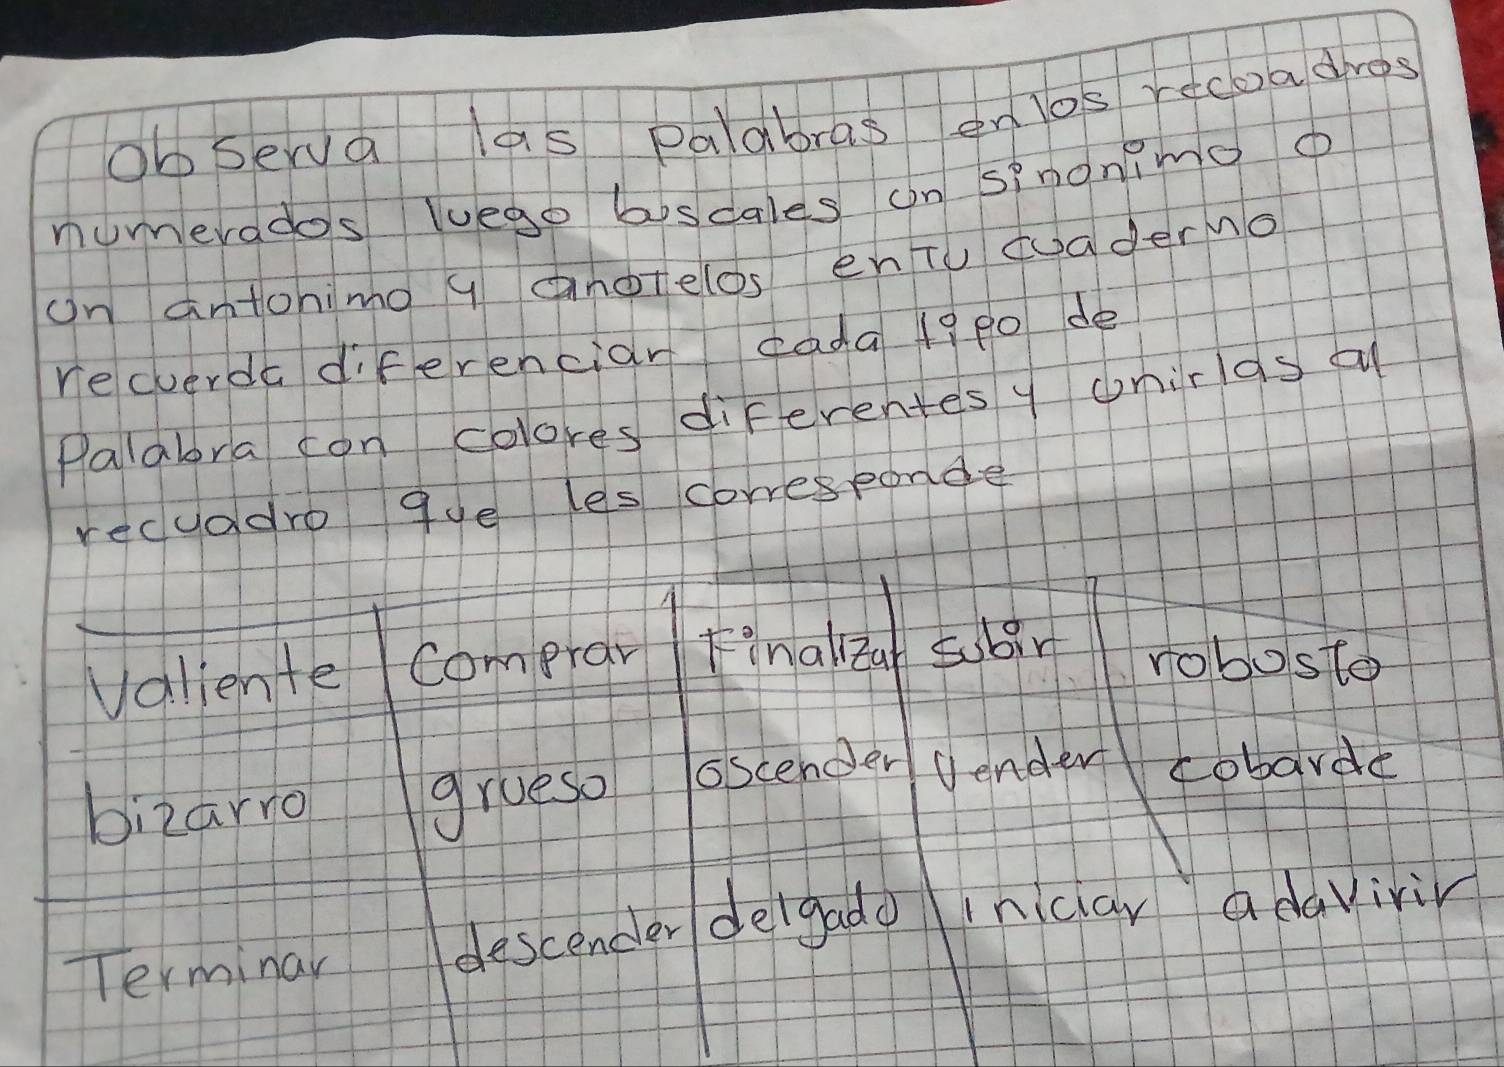 Observa las palabras en los recoadros
numerados luego buscales un sinonimo o
un antonimo y anotelos en tu cuaderno
recuerda diferenciar cada tipo de
palabra con colores diferentes y unirlas al
recuadro que les corresponde
Valiente comprar finalizar subir robusto
bizarro grueso oscender vender cobarde
Terminar descender delgado iniciar adavirir